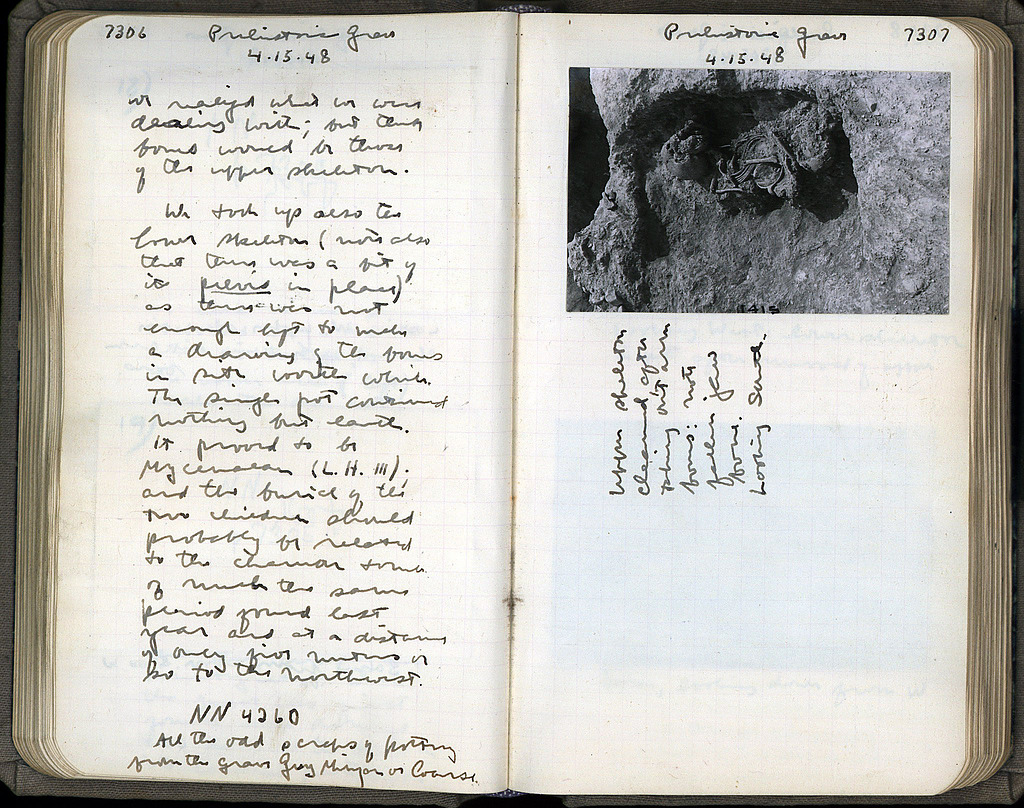 7306
Prehistoric Grave
4.15.48
we realized what we were
dealing with; but these
bones would be those
of the upper skeleton.
We took up also the
lower skeleton (note also
that there was a bit of
its pelvis in place)
as there was not
enough left to make
a drawing of the bones
in situ worth while.
The single pot contained
nothing but earth.
It proved to be
Mycenaean (L.H. III);
and the burial of the
two children should
probably be related
to the chamber tomb
of much the same
period found last
year and at a distance
of only five metres or
so to the northwest.
NN 4260
All the odd scraps of pottery
from the grave Grey Minyan or Coarse.
Prehistoric Grave
7307
4.15.48
Upper skeleton
cleaned after
taking out arm
bones: note
fallen jaw
bone.
Looking South.